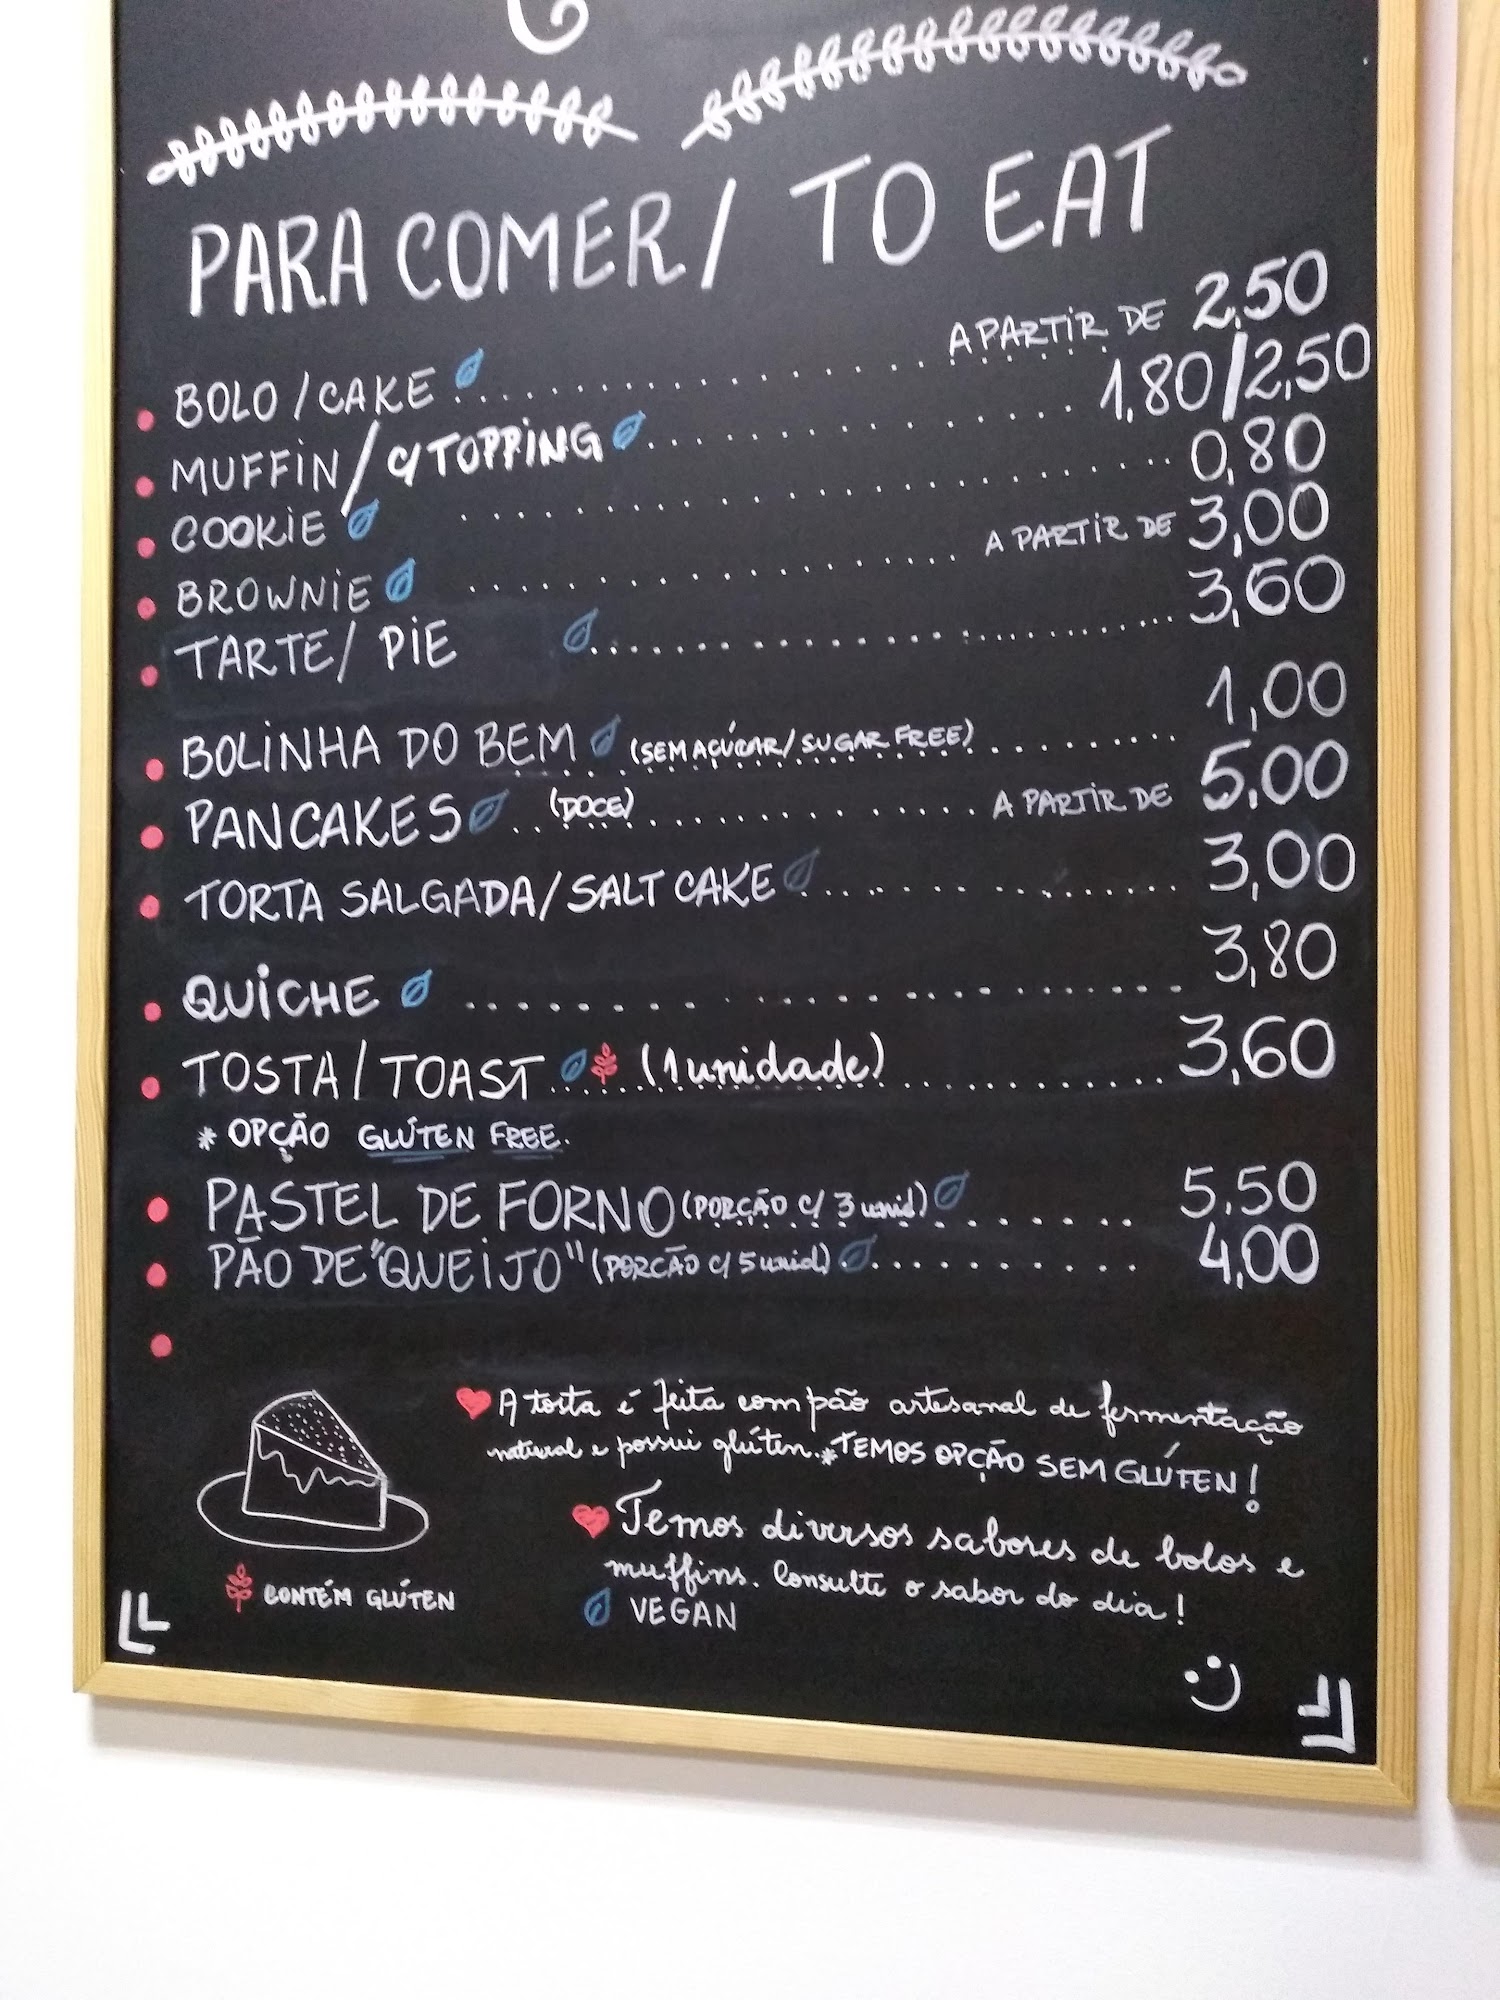 PARA COMER / TO EAT
BOLO / CAKE .................. A PARTIR DE 2,50
MUFFIN / C/ TOPPING .................. 1,80/2,50
COOKIE .................. 0,80
BROWNIE .................. A PARTIR DE 3,00
TARTE / PIE .................. 3,60
BOLINHA DO BEM (SEM AÇÚCAR / SUGAR FREE) .......... 1,00
PANCAKES (DOCE) .................. A PARTIR DE 5,00
TORTA SALGADA / SALT CAKE .................. 3,00
QUICHE .................. 3,80
TOSTA / TOAST (1 unidade) .................. 3,60
* OPÇÃO GLÚTEN FREE.
PASTEL DE FORNO (PORÇÃO C/ 3 unid) .......... 5,50
PÃO DE "QUEIJO" (PORCÃO C/ 5 unid) .......... 4,00
A tosta é feita com pão artesanal de fermentação
natural e possui glúten. *TEMOS OPÇÃO SEM GLÚTEN!
Temos diversos sabores de bolos e
muffins. Consulte o sabor do dia!
CONTÉM GLÚTEN
VEGAN
:)